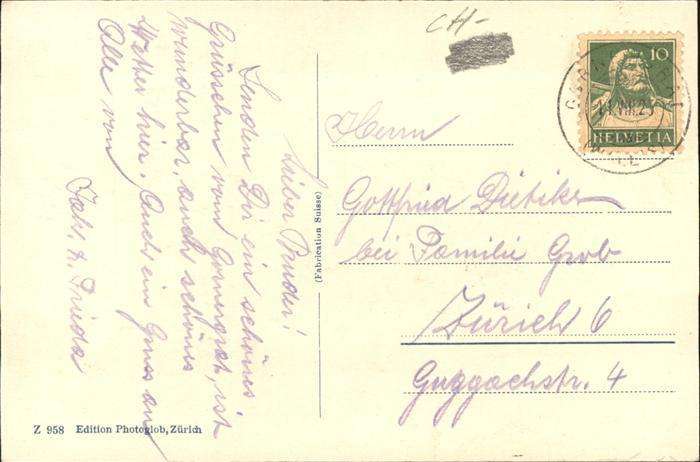 CH-
Lieber Bruder!
Senden Dir ein schönes
Grüsschen vom Gornergrat, ist
wunderbar, auch schönes
Wetter hier. Auch ein Gruss an
Alle von
Frieda
Herrn
Gottfried Dietiker
bei Familie Grob
Zürich 6
Guggachstr. 4
10
HELVETIA
(Fabrication Suisse)
Z 958 Edition Photoglob, Zürich